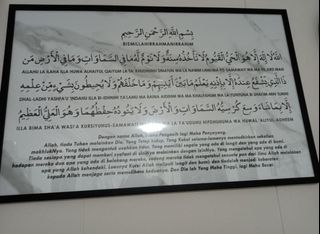 بِسْمِ اللهِ الرَّحْمٰنِ الرَّحِيْمِ
BISMILLAHIRRAHMANIRRAHIM
اَللهُ لَآ اِلٰهَ اِلَّا هُوَ الْحَيُّ الْقَيُّوْمُ لَا تَأْخُذُهُ سِنَةٌ وَلَا نَوْمٌ لَهُ مَا فِي السَّمَاوَاتِ وَمَا فِي الْأَرْضِ مَنْ
ALLAHU LA ILAHA ILLA HUWA ALHAYYUL QAYYUM LA TA' KHUDHUHU SINATUN WA LA NAWM LAHU MA FIS SAMAWATI WA MA FIL ARD MAN
ذَا الَّذِي يَشْفَعُ عِنْدَهُ إِلَّا بِإِذْنِهِ يَعْلَمُ مَا بَيْنَ أَيْدِيهِمْ وَمَا خَلْفَهُمْ وَلَا يُحِيطُونَ بِشَيْءٍ مِنْ عِلْمِهِ
DHAL-LADHI YASHFA'U INDAHU ILLA BI-IDHNIHI YA'LAMU MA BAYNA AIDEEHIM WA MA KHALFAHUM WA LA YUHITUNA BI SHAY'IM MIN ILMIHI
إِلَّا بِمَا شَاءَ وَسِعَ كُرْسِيُّهُ السَّمَاوَاتِ وَالْأَرْضَ وَلَا يَئُودُهُ حِفْظُهُمَا وَهُوَ الْعَلِيُّ الْعَظِيمُ
ILLA BIMA SHA'A WASI'A KURSIYUHUS-SAMAWATI LA YA'UDUHU HIFDHUHUMA WA HUWAL ALIYUL ADHEEM
Dengan nama Allah, Yang Pengasih lagi Maha Penyayang.
Allah, tiada Tuhan melainkan Dia, Yang Tetap hidup, Yang Kekal selama-lamanya mentadbirkan sekalian
makhlukNya. Yang tidak mengantuk usahkan tidur. Yang memiliki segala yang ada di langit dan yang ada di bumi.
Tiada sesiapa yang dapat memberi syafaat di sisiNya melainkan dengan izinNya. Yang mengetahui apa yang ada di
hadapan mereka dan apa yang ada di belakang mereka, sedang mereka tidak mengetahui sesuatu pun dari ilmu Allah melainkan
apa yang Allah kehendaki. Luasnya Kursi Allah meliputi langit dan bumi; dan tiadalah menjadi keberatan
kepada Allah menjaga serta memelihara keduanya. Dan Dia lah Yang Maha Tinggi, lagi Maha Besar.